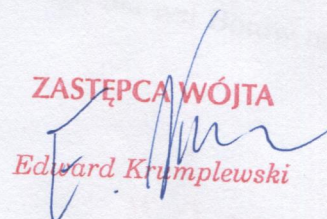 ZASTĘPCA WÓJTA
Edward Krumplewski